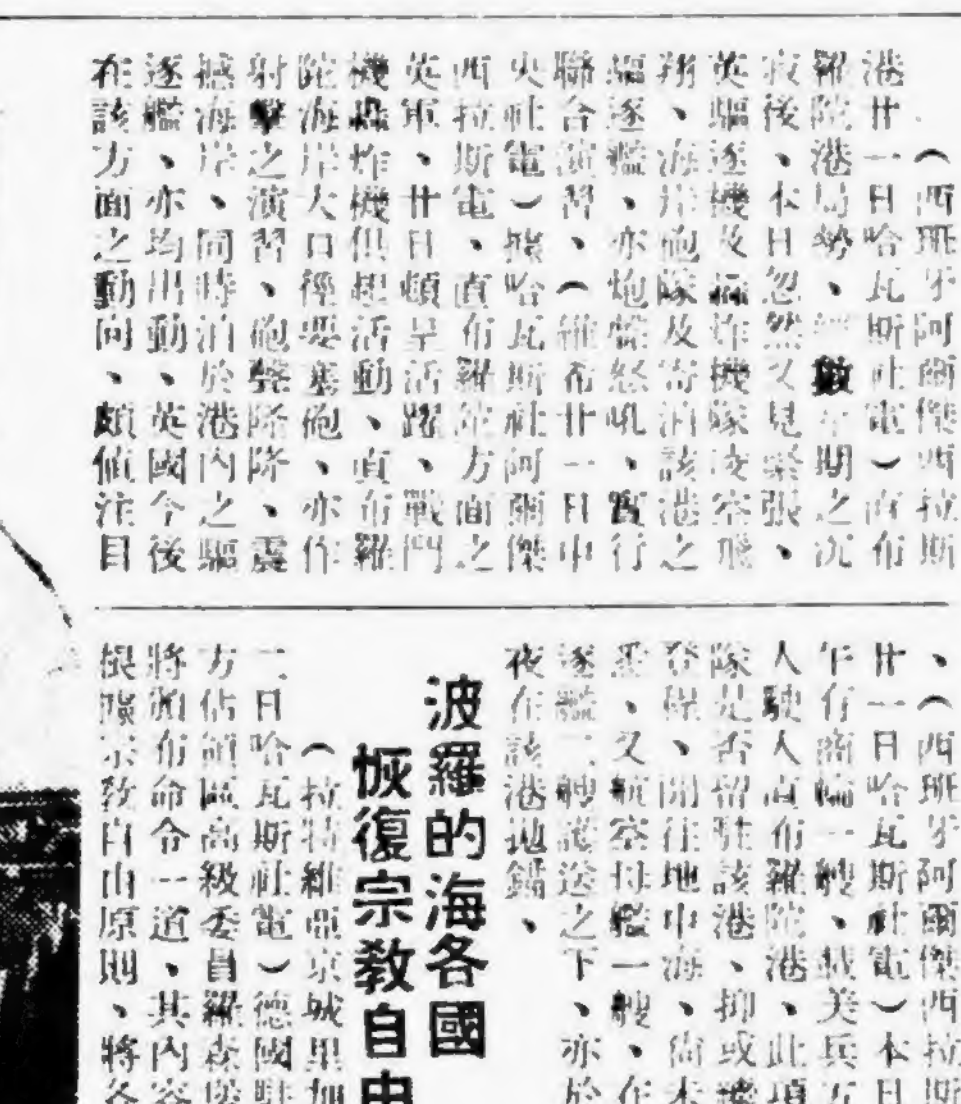 （西班牙阿爾傑西拉斯
港廿一日哈瓦斯社電）直布
羅陀港局勢、經數星期之沉
寂後、本日忽然又見緊張、
英驅逐機及轟炸機隊凌空飛
翔、海岸砲隊及寄泊該港之
驅逐艦、亦炮聲怒吼、實行
聯合演習、（維希廿一日中
央社電）據哈瓦斯社阿爾傑
西拉斯電、直布羅陀方面之
英軍、廿日頗呈活躍、戰鬥
機轟炸機俱起活動、直布羅
陀海岸大口徑要塞砲、亦作
射擊之演習、砲聲隆隆、震
撼海岸、同時泊於港內之驅
逐艦、亦均出動、英國今後
在該方面之動向、頗值注目
、（西班牙阿爾傑西拉斯
廿一日哈瓦斯社電）本日
午有商輪一艘、載美兵五
人駛入直布羅陀港、此項
隊是否留駐該港、抑或繼
登程、開往地中海、尚未
悉、又航空母艦一艘、在
逐艦二艘護送之下、亦於
夜在該港拋錨、
波羅的海各國
恢復宗教自由
（拉特維亞京城里加
二日哈瓦斯社電）德國駐
方佔領區高級委員羅森堡
將頒布命令一道、其內容
根據宗教自由原則、將各